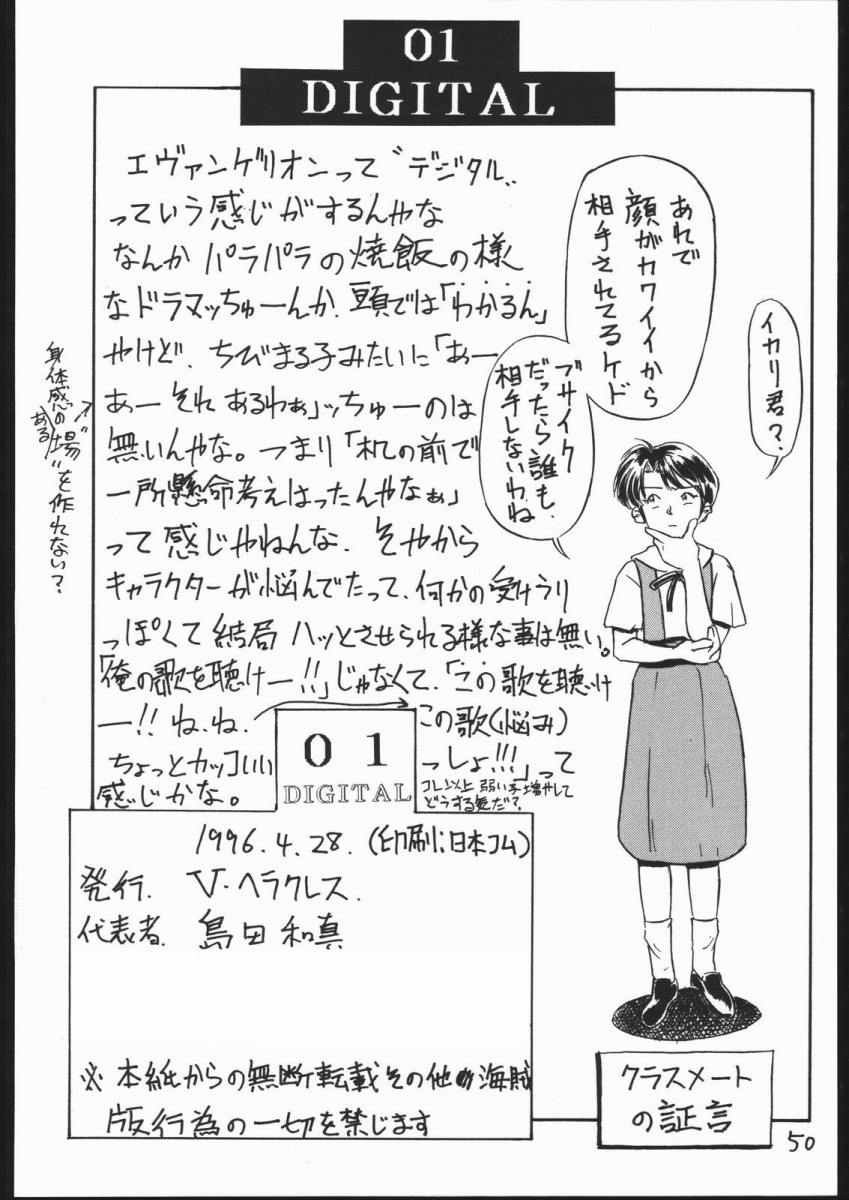 01
DIGITAL
エヴァンゲリオンって〝デジタル〟
っていう感じがするんやな
なんかパラパラの焼飯の様
なドラマッちゅーんか、頭では「わかるん」
やけど、ちびまる子みたいに「あー
あーそれあるわぁ」ッちゅーのは
無いんやな。つまり「机の前で
一所懸命考えはったんやなぁ」
って感じやねんな、そやから
キャラクターが悩んでたって、何かの受けうり
っぽくて結局ハッとさせられる様な事は無い。
「俺の歌を聴けー!!」じゃなくて、「この歌を聴け
ー!!ね、ね、
この歌(悩み)
ちょっとカッコいい
っしょ!!!」って
感じかな。
コレ以上弱い子増やして
どうする気だ?
身体感の
ある
〝場〟を作れない?
イカリ君?
あれで
顔がカワイイから
相手されてるケド
ブサイク
だったら誰も
相手しないわね
01
DIGITAL
1996.4.28.(印刷;日本コム)
発行. V・ヘラクレス.
代表者. 島田和真
※本紙からの無断転載その他の海賊
版行為の一切を禁じます
クラスメート
の証言
50